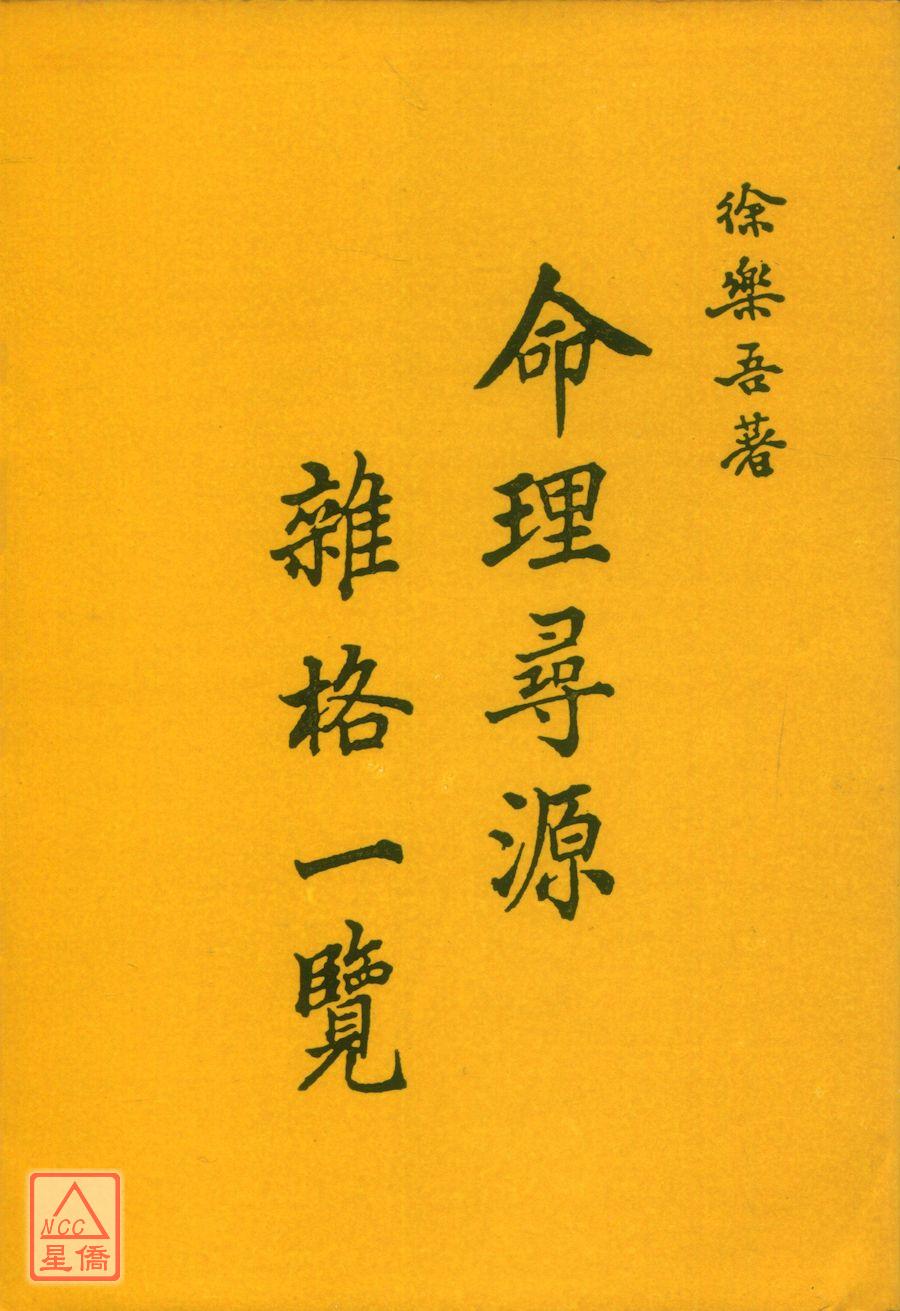 徐樂吾著
命理尋源
雜格一覽
NCC
星僑